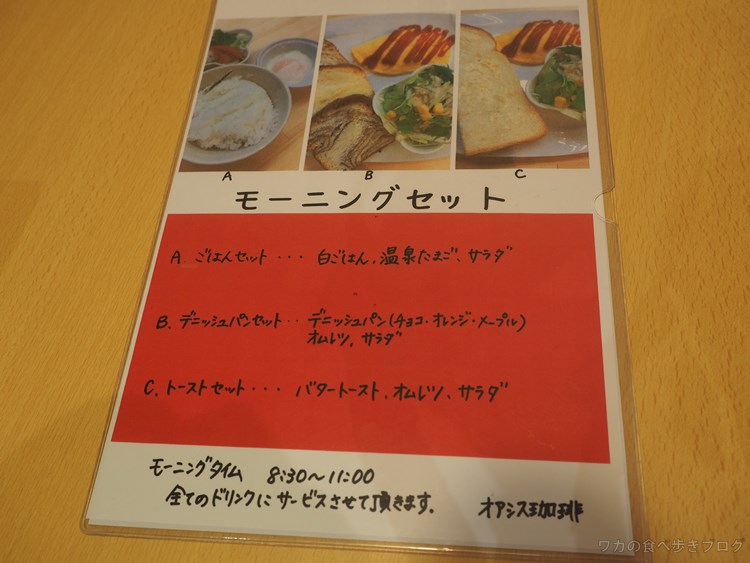 A
B
C
モーニングセット
A. ごはんセット・・・ 白ごはん、温泉たまご、サラダ
B. デニッシュパンセット・・ デニッシュパン(チョコ・オレンジ・メープル)
オムレツ、サラダ
C. トーストセット・・・ バタートースト、オムレツ、サラダ
モーニングタイム 8:30〜11:00
全てのドリンクにサービスさせて頂きます。 オアシス珈琲
ワカの食べ歩きブログ